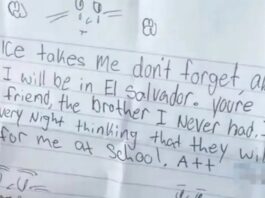 Ice takes me don't forget, a
I will be in El Salvador. Youre
friend, the brother I Never had.
very Night thinking that they wil
for me at School. Att